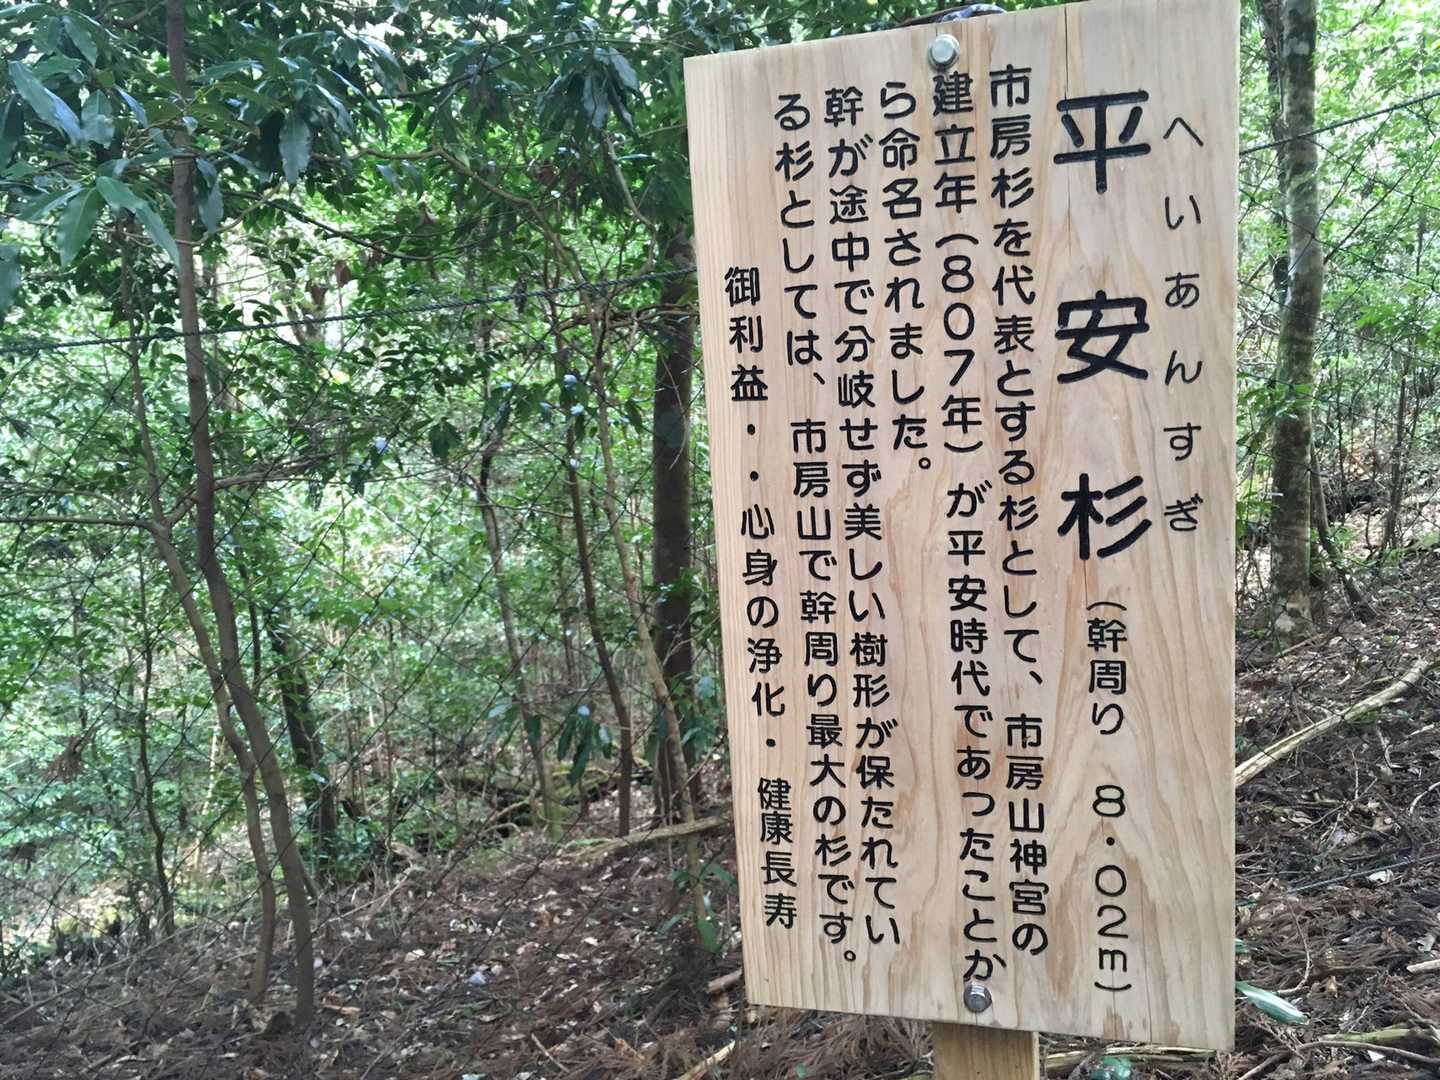 へいあんすぎ
平安杉（幹周り 8.02m）
市房杉を代表とする杉として、市房山神宮の
建立年（807年）が平安時代であったことか
ら命名されました。
幹が途中で分岐せず美しい樹形が保たれてい
る杉としては、市房山で幹周り最大の杉です。
御利益・・心身の浄化・健康長寿